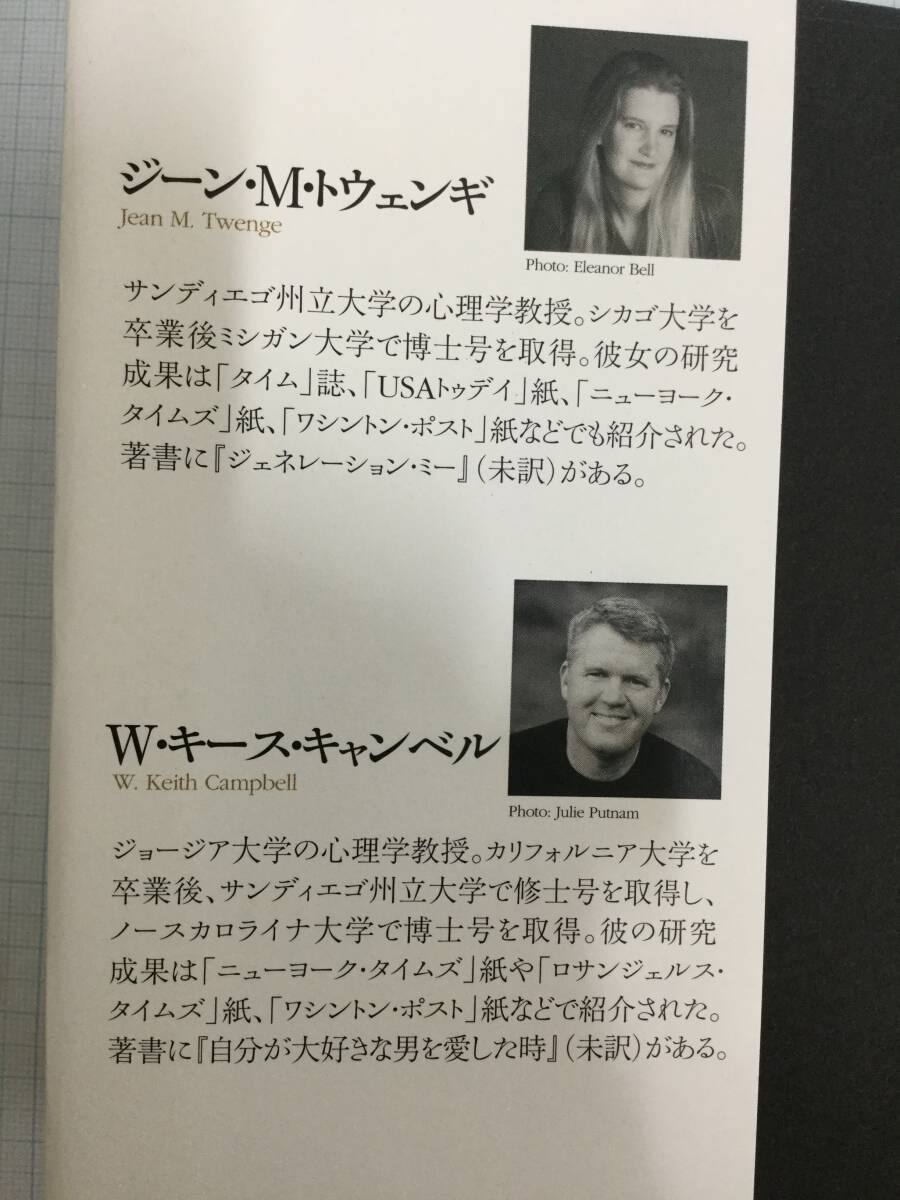 ジーン・M・トウェンギ
Jean M. Twenge
Photo: Eleanor Bell
サンディエゴ州立大学の心理学教授。シカゴ大学を
卒業後ミシガン大学で博士号を取得。彼女の研究
成果は「タイム」誌、「USAトゥデイ」紙、「ニューヨーク・
タイムズ」紙、「ワシントン・ポスト」紙などでも紹介された。
著書に『ジェネレーション・ミー』（未訳）がある。
W・キース・キャンベル
W. Keith Campbell
Photo: Julie Putnam
ジョージア大学の心理学教授。カリフォルニア大学を
卒業後、サンディエゴ州立大学で修士号を取得し、
ノースカロライナ大学で博士号を取得。彼の研究
成果は「ニューヨーク・タイムズ」紙や「ロサンジェルス・
タイムズ」紙、「ワシントン・ポスト」紙などで紹介された。
著書に『自分が大好きな男を愛した時』（未訳）がある。